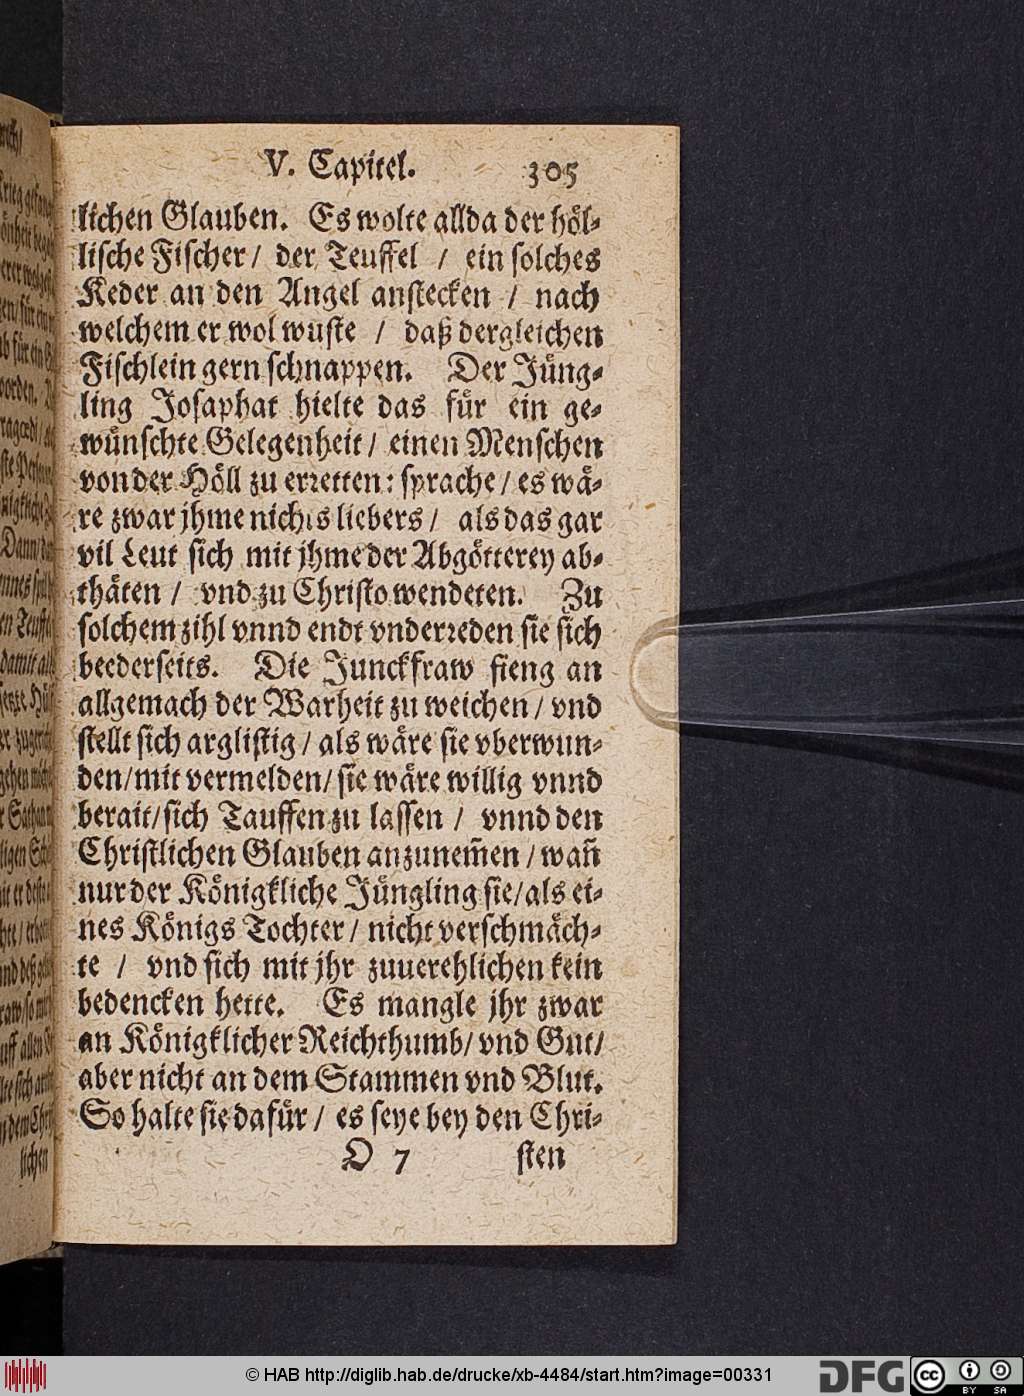 V. Capitel. 305
lichen Glauben. Es wolte allda der höl-
lische Fischer / der Teuffel / ein solches
Keder an den Angel anstecken / nach
welchem er wol wuste / daß dergleichen
Fischlein gern schnappen. Der Jüng-
ling Josaphat hielte das für ein ge-
wünschte Gelegenheit / einen Menschen
von der Höll zu erretten: sprache / es wä-
re zwar jhme nichts liebers / als das gar
vil Leut sich mit jhme der Abgötterey ab-
thäten / vnd zu Christo wendeten. Zu
solchem zihl vnnd endt vnderreden sie sich
beederseits. Die Junckfraw fieng an
allgemach der Warheit zu weichen / vnd
stellt sich arglistig / als wäre sie vberwun-
den / mit vermelden / sie wäre willig vnnd
berait / sich Tauffen zu lassen / vnnd den
Christlichen Glauben anzunem̃en / wañ
nur der Königkliche Jüngling sie / als ei-
nes Königs Tochter / nicht verschmäch-
te / vnd sich mit jhr zuuerehlichen kein
bedencken hette. Es mangle jhr zwar
an Königklicher Reichthumb / vnd Gut /
aber nicht an dem Stammen vnd Blut.
So halte sie dafür / es seye bey den Chri-
O 7 sten
lichen
© HAB http://diglib.hab.de/drucke/xb-4484/start.htm?image=00331
DFG
cc
BY SA